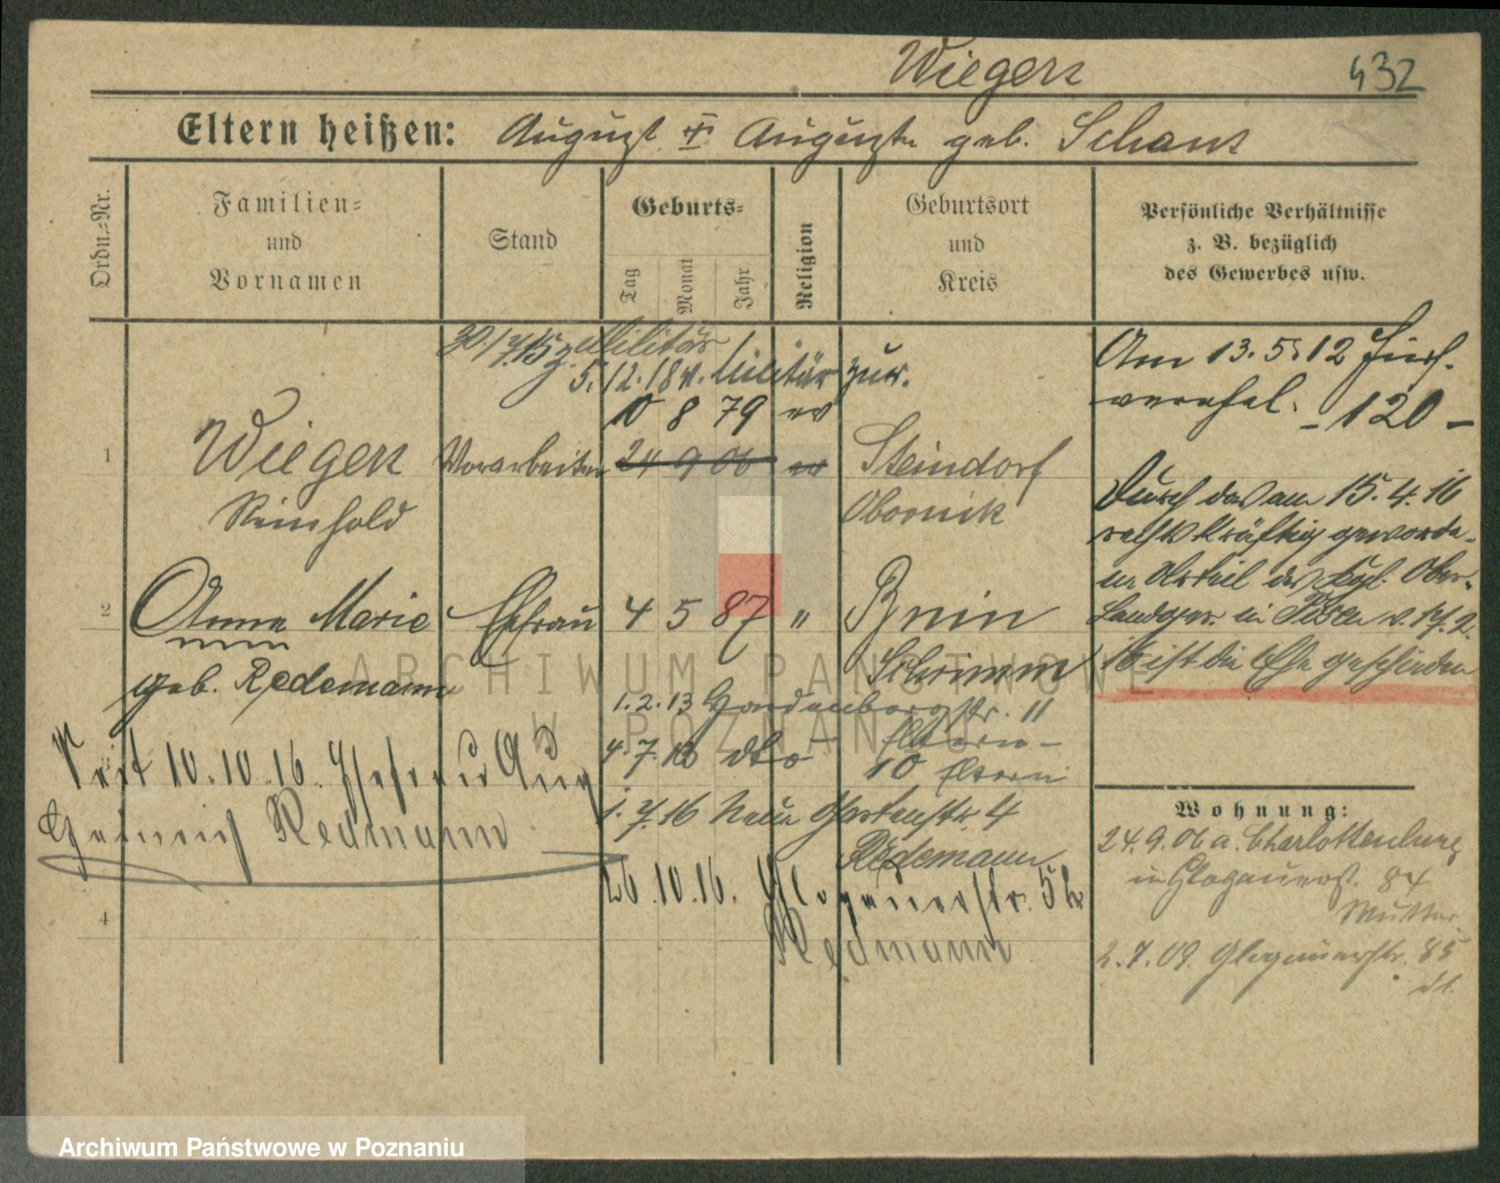 Wiegen
432
Eltern heißen: August u. Auguste geb. Schanz
Ordn.-Nr.
Familien-
und
Vornamen
Stand
Geburts-
Tag
Monat
Jahr
Religion
Geburtsort
und
Kreis
Persönliche Verhältnisse
z. B. bezüglich
des Gewerbes usw.
30./7.15 z. Militär
5.12.18 v. Militär zur.
10 8 79 ev
1
Wiegen
Vorarbeiter
24 9 06 ev
Steindorf
Reinhold
Obornik
Am 13.5.12 hier
verehel. - 120 -
Durch das am 15.4.16
rechtskräftig geworde-
ne Urteil des Kgl. Ober-
Landger. in Posen v.
16 ist die Ehe geschieden
2
Anna Marie
Ehefrau
4 5 87 "
Bnin
Schrimm
geb. Redemann
1.2.13 11
4.7.13 dto Eltern
10 Eltern
1.7.16 Neue Gartenstr. 4
Redemann
10.10.16. Ehefrau
Heinrich Redmann
26.10.16. Glogauerstr. 52
Redmann
4
Wohnung:
24.9.06 a. Charlottenburg
in Glogauerst. 84
Mutter
2.7.09. Glogauerstr. 85
dt.
ARCHIWUM PAŃSTWOWE
W POZNANIU
Archiwum Państwowe w Poznaniu